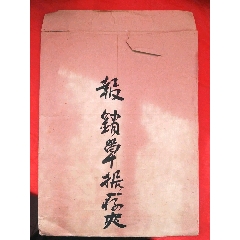 報銷單据存夾